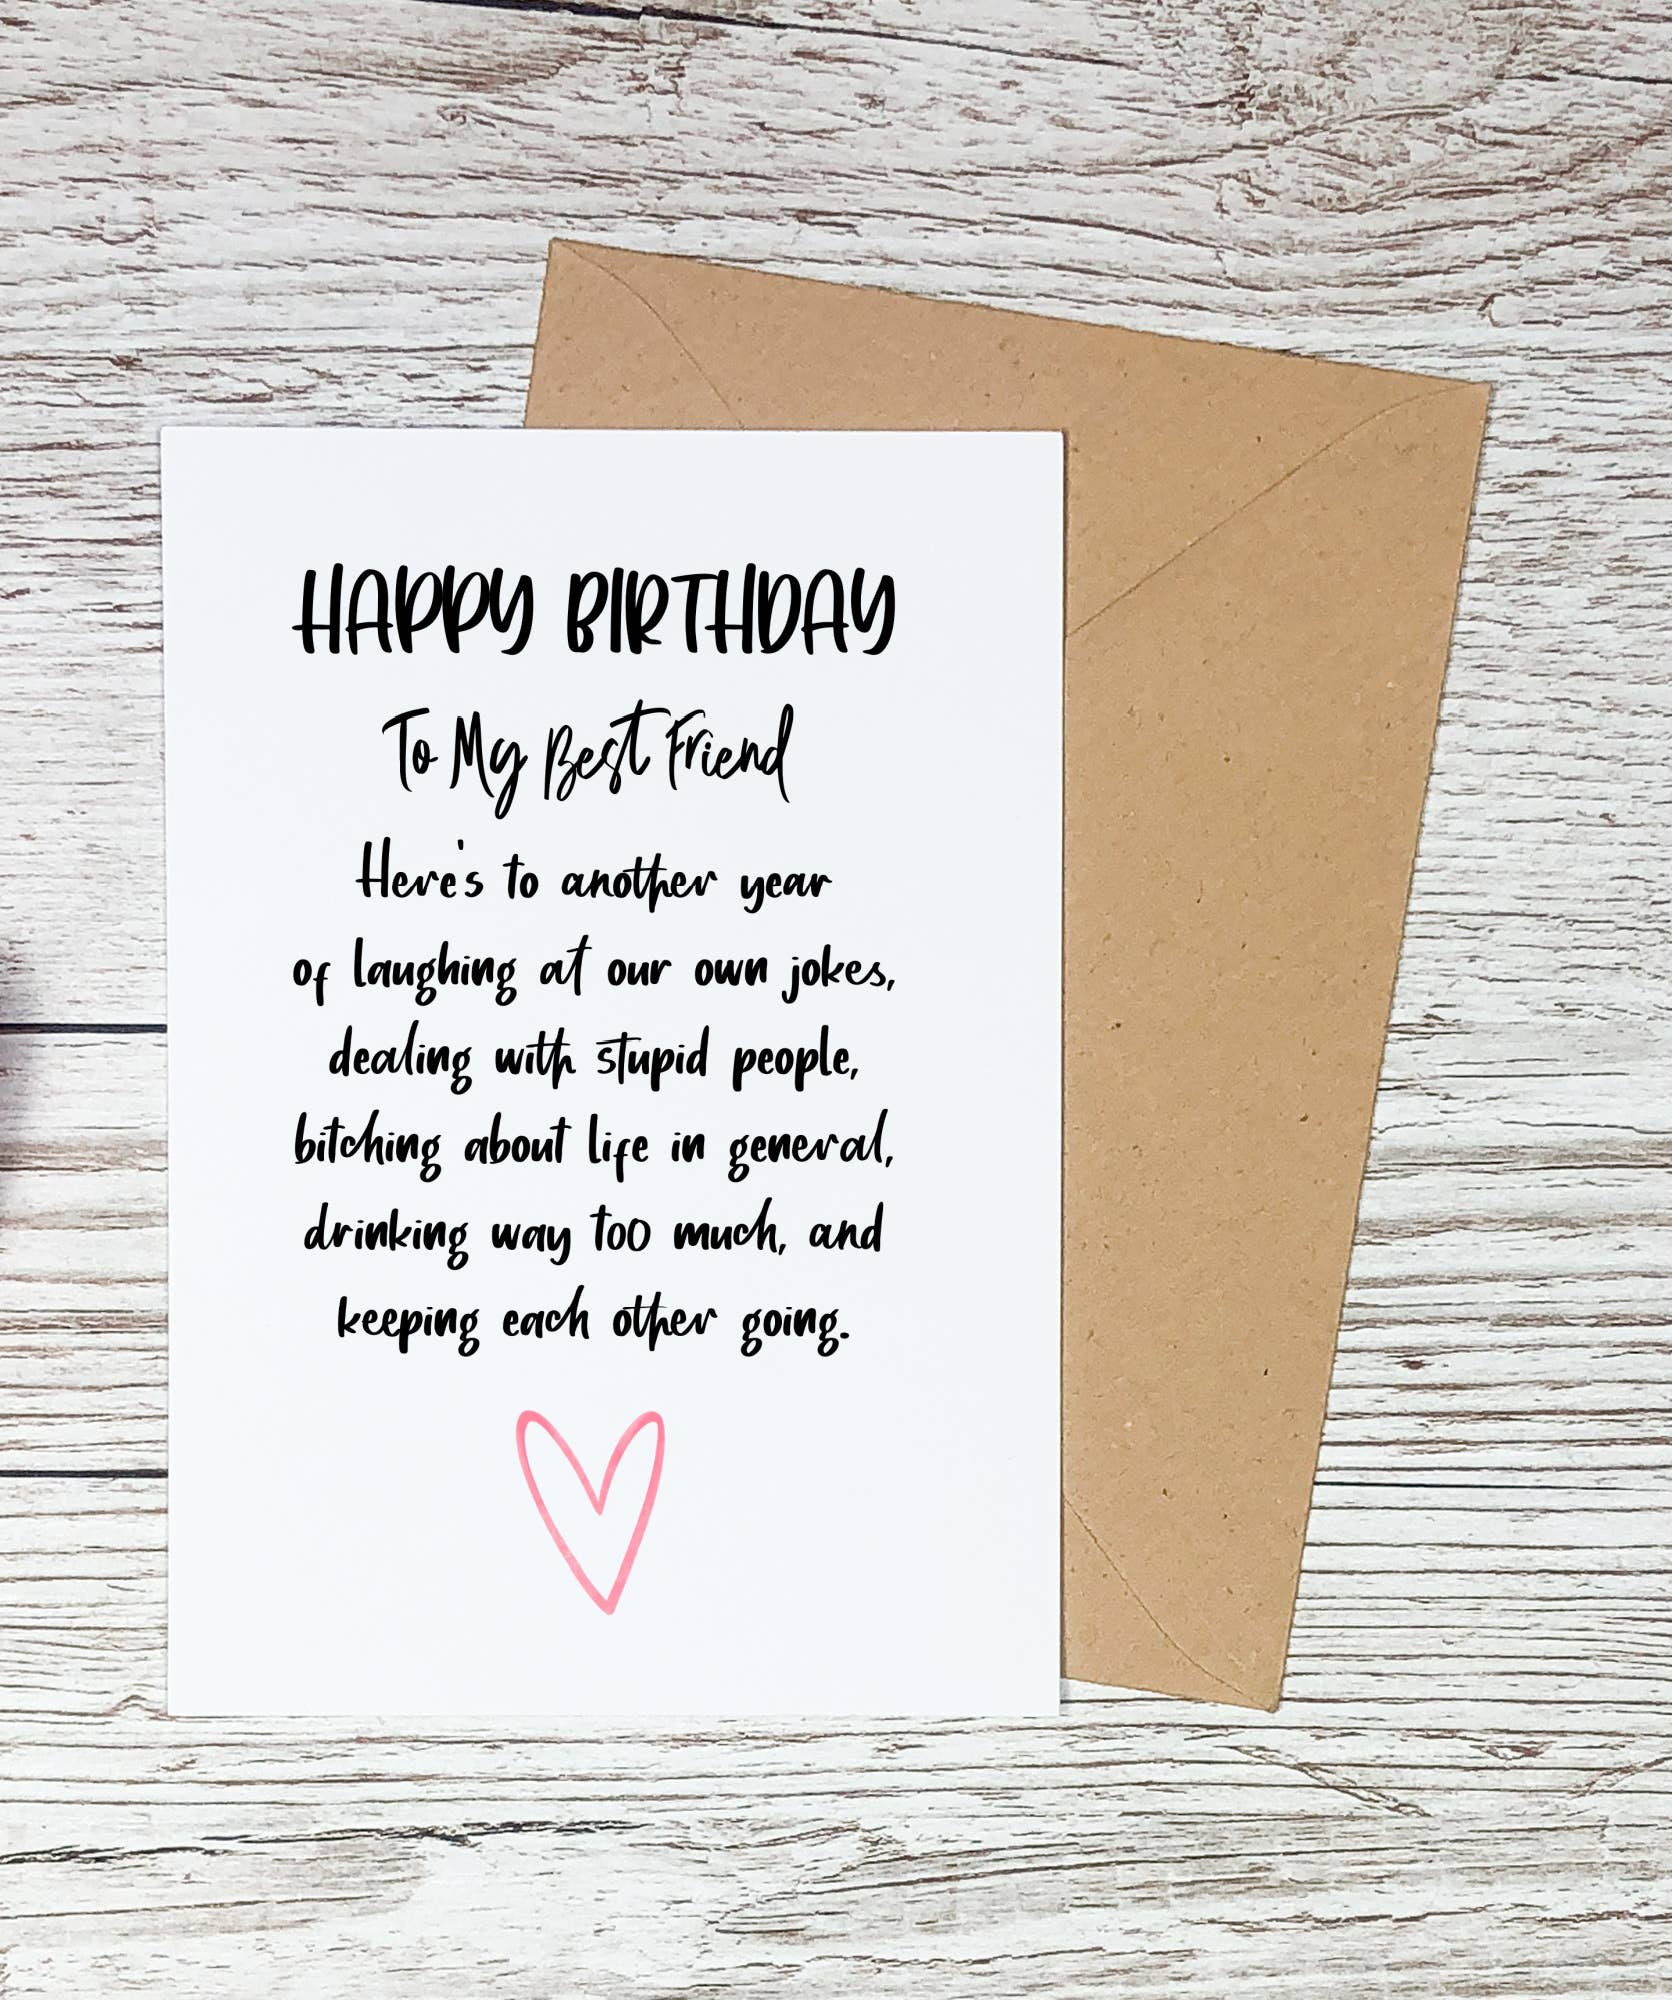 HAPPY BIRTHDAY
To My Best Friend
Here's to another year
of laughing at our own jokes,
dealing with stupid people,
bitching about life in general,
drinking way too much, and
keeping each other going.